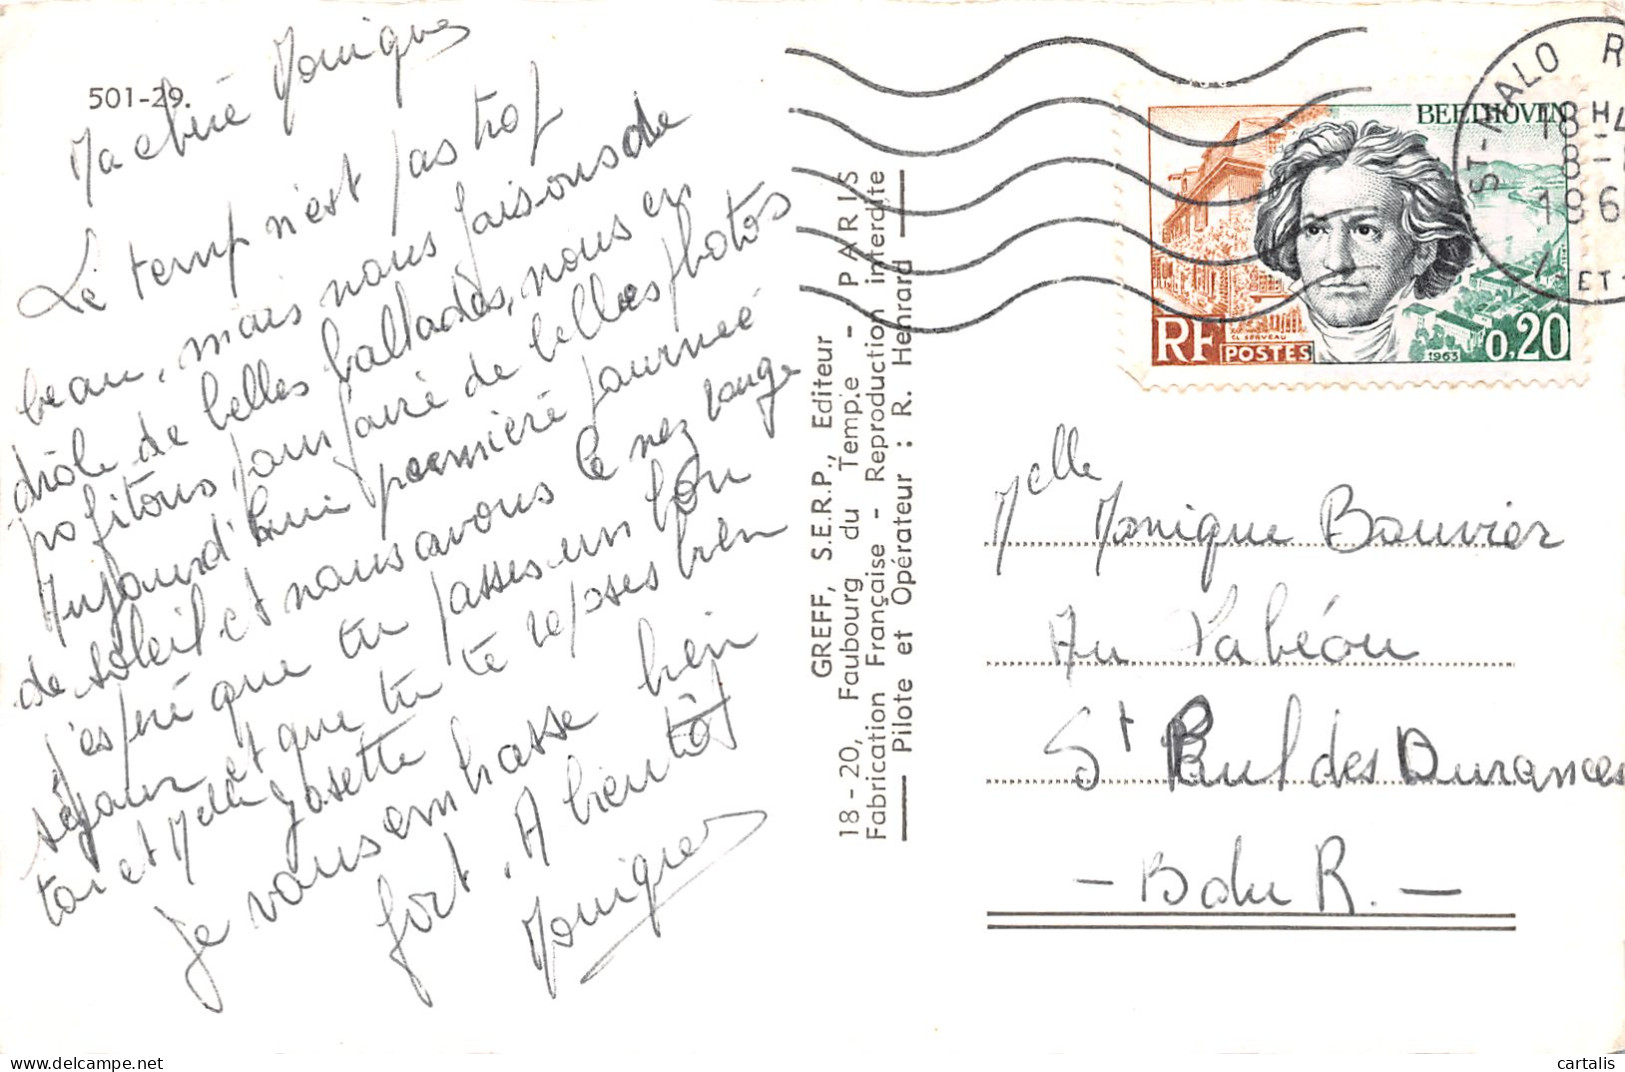 501-29.
Ma chère Monique
Le temp n'est pas trop
beau, mais nous faisons de
drôle de belles ballades, nous en
pofitons pour faire de belles photos
Aujourd'hui première journée
de soleil et nous avons le nez rouge
j'espère que tu passes un bon
séjour et que tu te reposes bien
toi et Melle Josette
je vous embrasse bien
fort. A bientôt
Monique
GREFF, S.E.R.P., Editeur
18-20, Faubourg du Temple - PARIS
Fabrication Française - Reproduction interdite
Pilote et Opérateur : R. Henrard
BEETHOVEN
CL. SERVEAU
RF POSTES 1963 0,20
ST-MALO R
18 H 4
8 -
196
ET
Melle Monique Bouvier
Au
St Paul des Durances
- B du R. -
cartalis